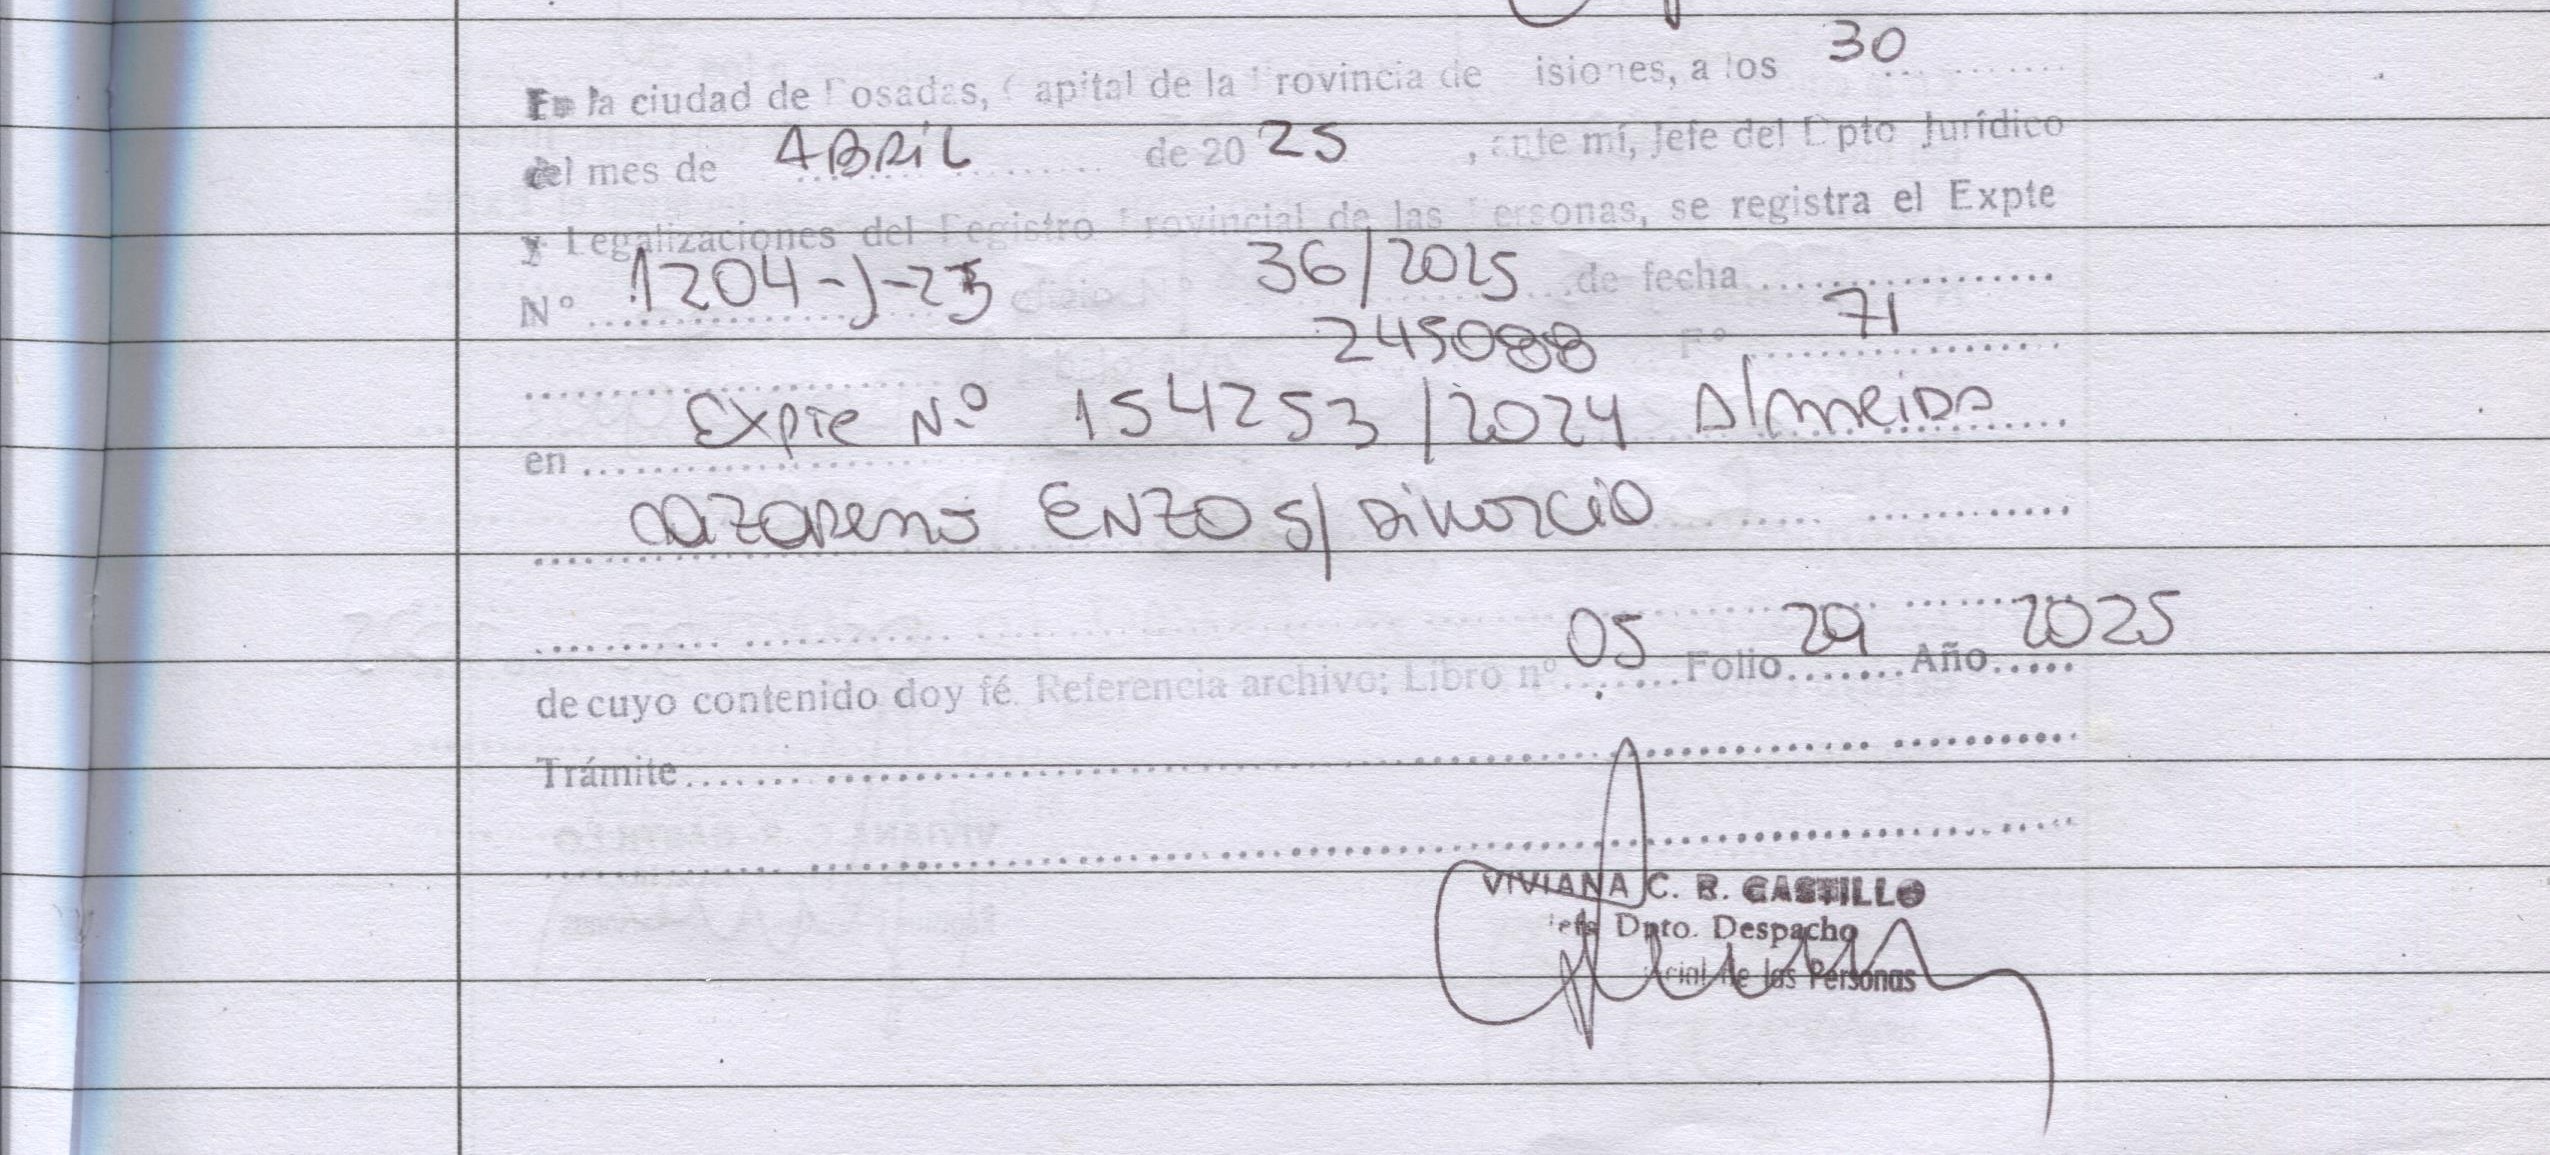 En la ciudad de Posadas, Capital de la Provincia de Misiones, a los 30
del mes de ABRIL de 20 25, ante mí, Jefe del Dpto Jurídico
y Legalizaciones del Registro Provincial de las Personas, se registra el Expte
Nº 1204-J-25 oficio Nº 36/2025 de fecha
245088 Fº 71
en Expte Nº 154253/2024 Almeida
nazareno ENZO S/ Divorcio
de cuyo contenido doy fé. Referencia archivo: Libro nº 05 Folio 29 Año 2025
Trámite
VIVIANA C. R. CASTILLO
Jefa Dpto. Despacho
de las Personas